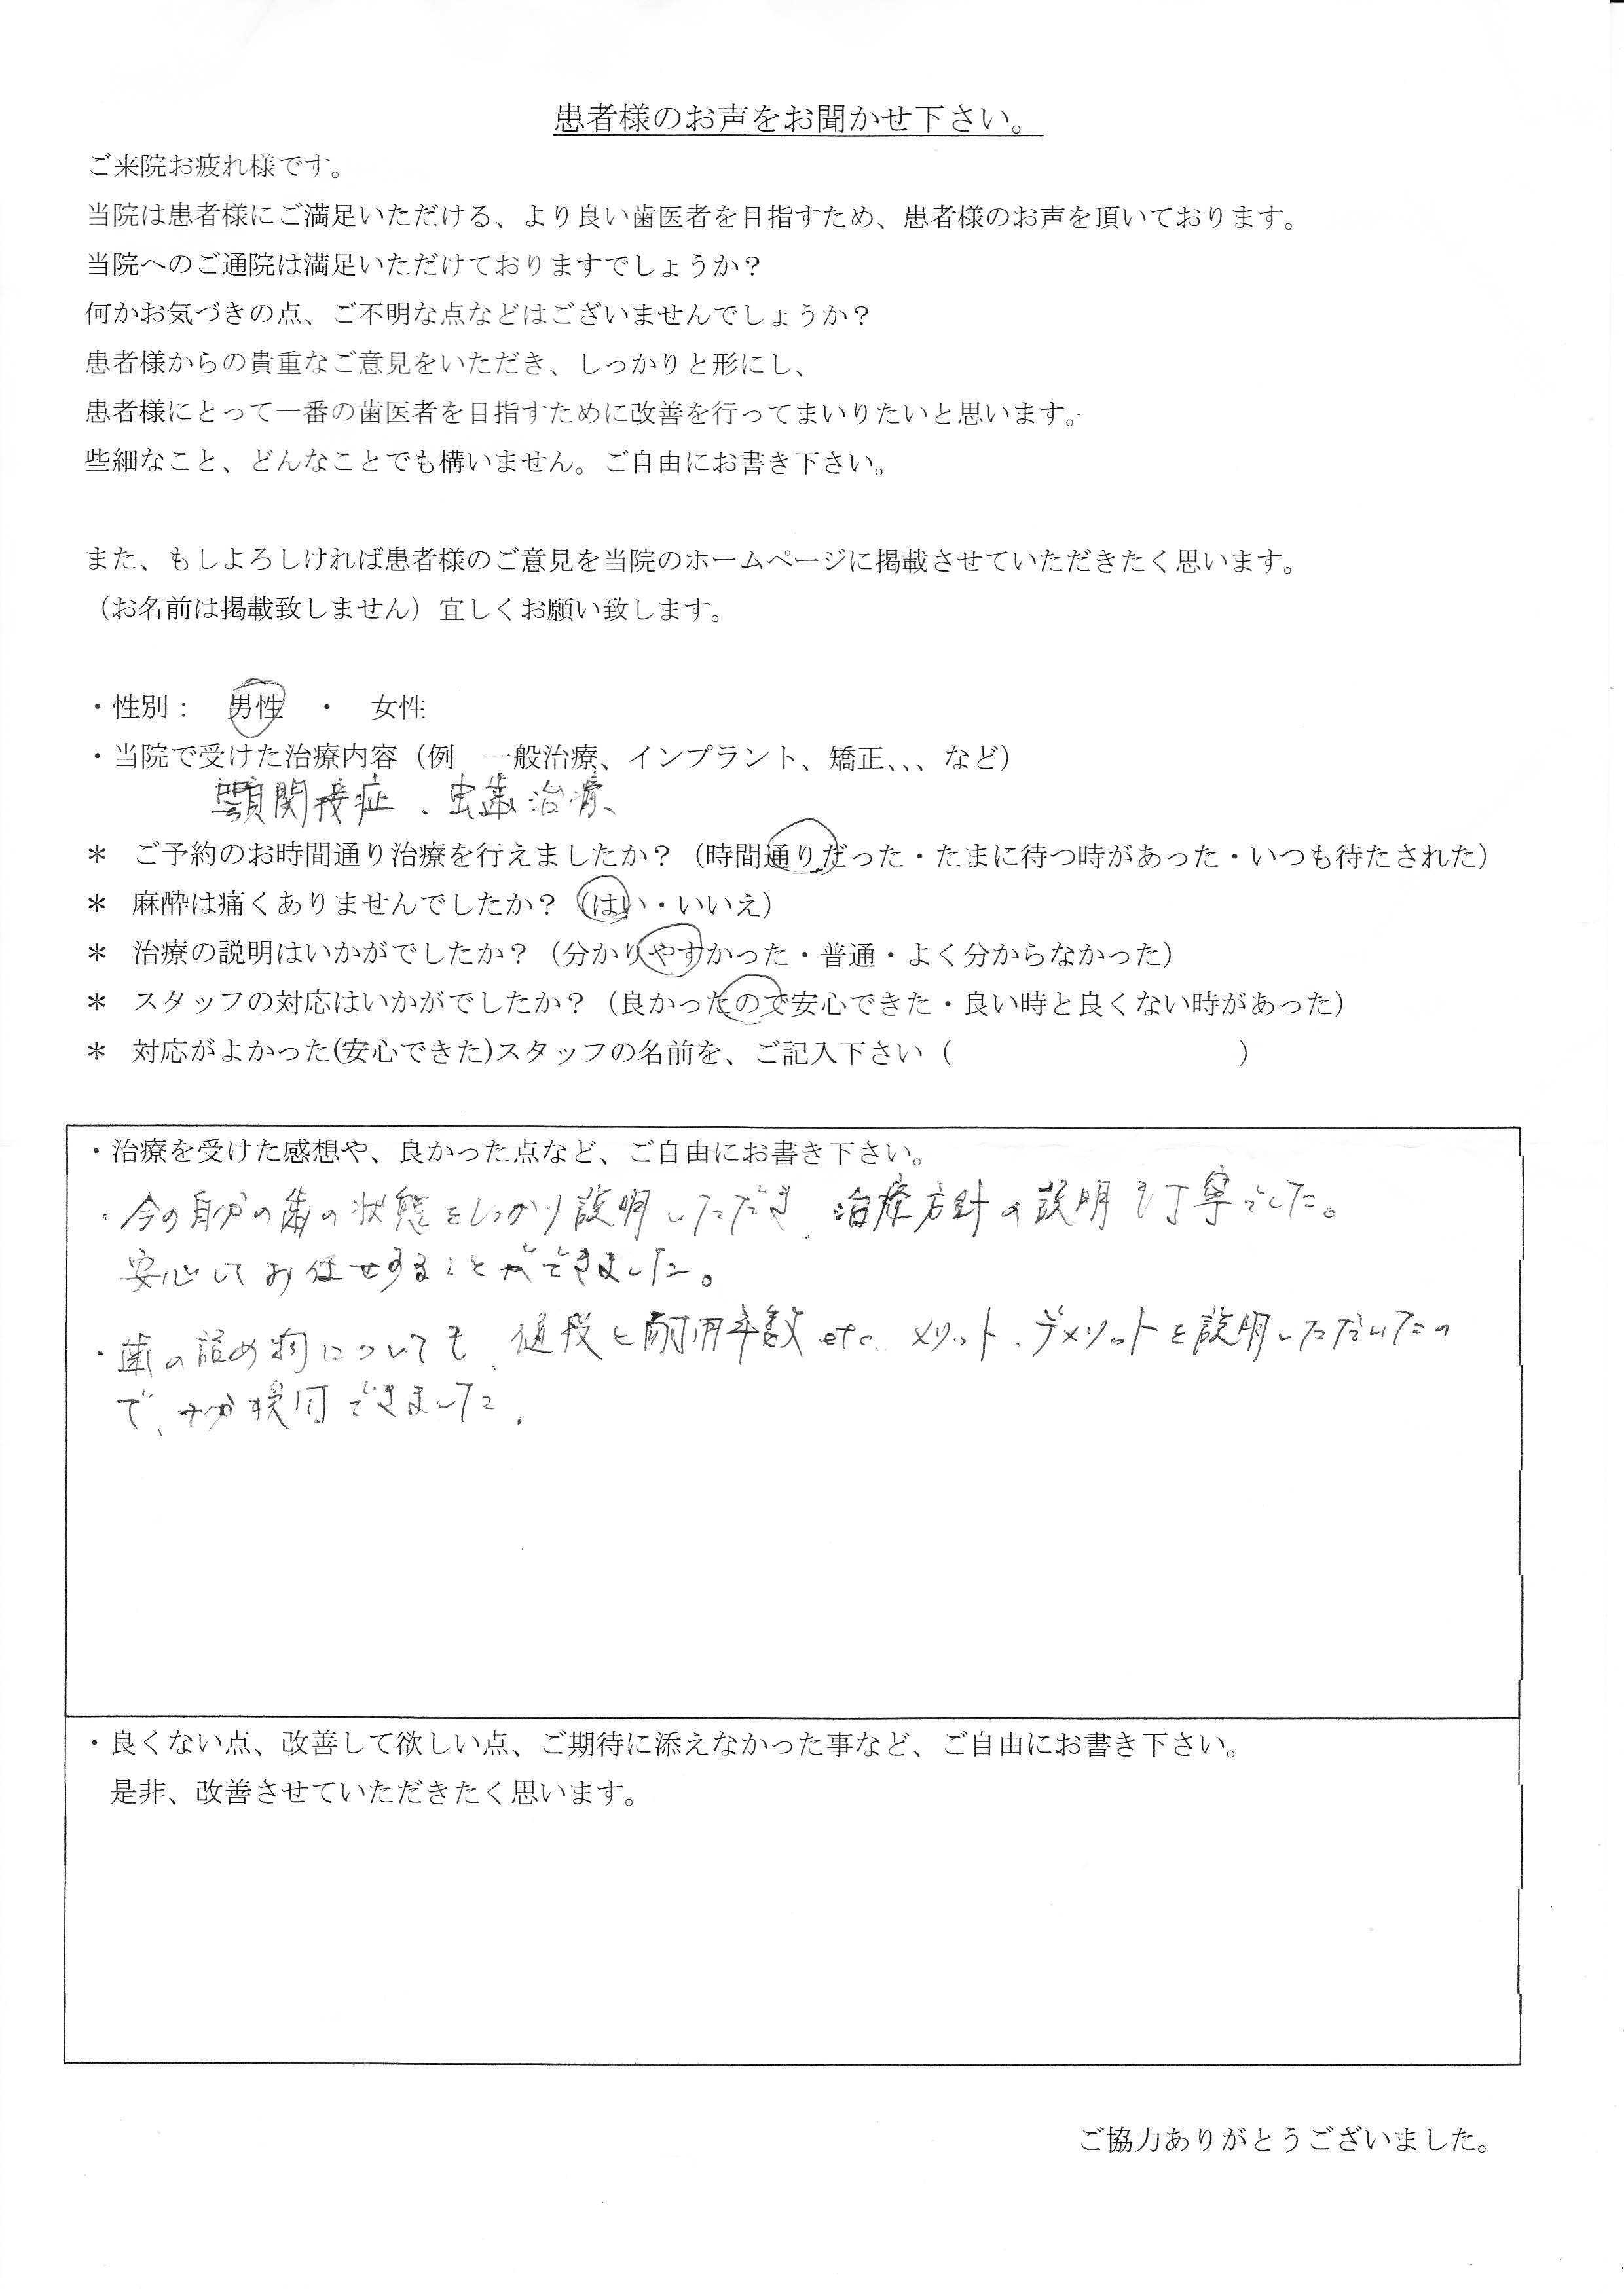 患者様のお声をお聞かせ下さい。
ご来院お疲れ様です。
当院は患者様にご満足いただける、より良い歯医者を目指すため、患者様のお声を頂いております。
当院へのご通院は満足いただけておりますでしょうか？
何かお気づきの点、ご不明な点などはございませんでしょうか？
患者様からの貴重なご意見をいただき、しっかりと形にし、
患者様にとって一番の歯医者を目指すために改善を行ってまいりたいと思います。
些細なこと、どんなことでも構いません。ご自由にお書き下さい。
また、もしよろしければ患者様のご意見を当院のホームページに掲載させていただきたく思います。
（お名前は掲載致しません）宜しくお願い致します。
・性別： 男性 ・ 女性
・当院で受けた治療内容（例　一般治療、インプラント、矯正、、、など）
顎関接症、虫歯治療、
＊ ご予約のお時間通り治療を行えましたか？（時間通りだった・たまに待つ時があった・いつも待たされた）
＊ 麻酔は痛くありませんでしたか？（はい・いいえ）
＊ 治療の説明はいかがでしたか？（分かりやすかった・普通・よく分からなかった）
＊ スタッフの対応はいかがでしたか？（良かったので安心できた・良い時と良くない時があった）
＊ 対応がよかった(安心できた)スタッフの名前を、ご記入下さい（　　　　　　　　　　）
・治療を受けた感想や、良かった点など、ご自由にお書き下さい。
・今の自分の歯の状態をしっかり説明いただき、治療方針の説明も丁寧でした。
安心してお任せすることができました。
・歯の詰め物についても、値段と耐用年数etc. メリット、デメリットを説明いただいたの
で、十分検討できました。
・良くない点、改善して欲しい点、ご期待に添えなかった事など、ご自由にお書き下さい。
是非、改善させていただきたく思います。
ご協力ありがとうございました。